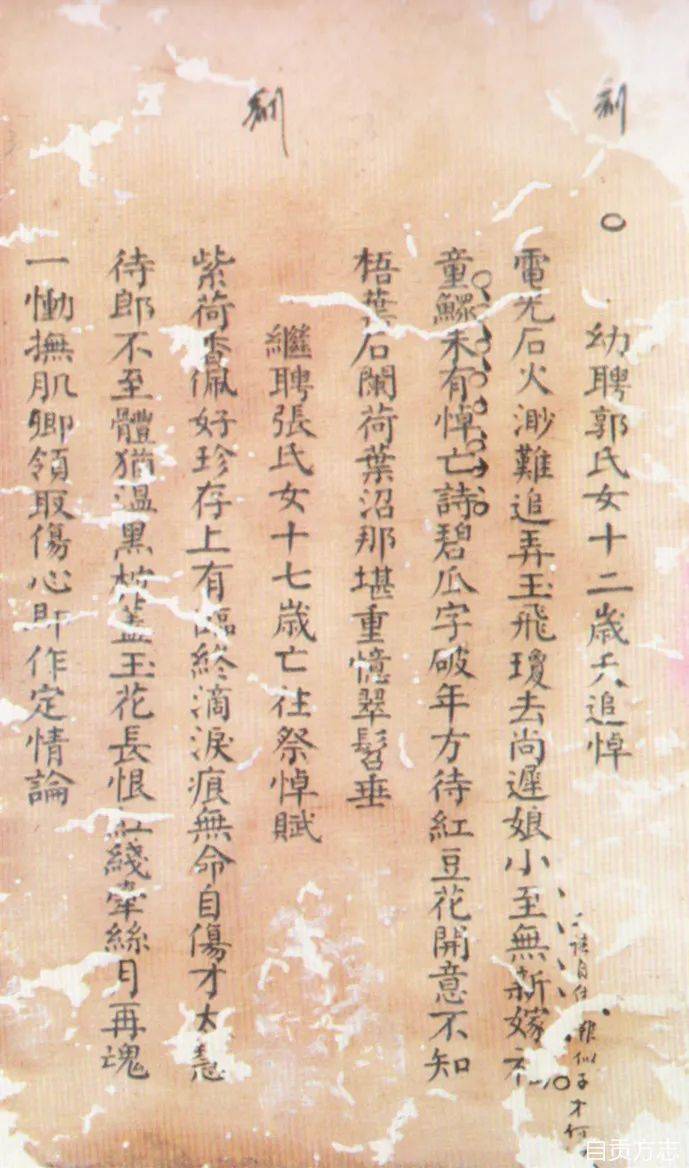 幼聘郭氏女十二歲夭追悼
電光石火渺難追弄玉飛瓊去尚遲娘小至無新嫁
童鰥未有悼亡詩碧瓜字破年方待紅豆花開意不知
梧葉石闌荷葉沼那堪重憶翠髫垂
繼聘張氏女十七歲亡往祭悼賦
紫荷香佩好珍存上有臨終滴淚痕無命自傷才太慧
待郎不至體猶溫黑棺蓋玉花長恨紅綫牽絲月再魂
一慟撫肌卿領取傷心即作定情論
自佳 似子才何
自贡方志